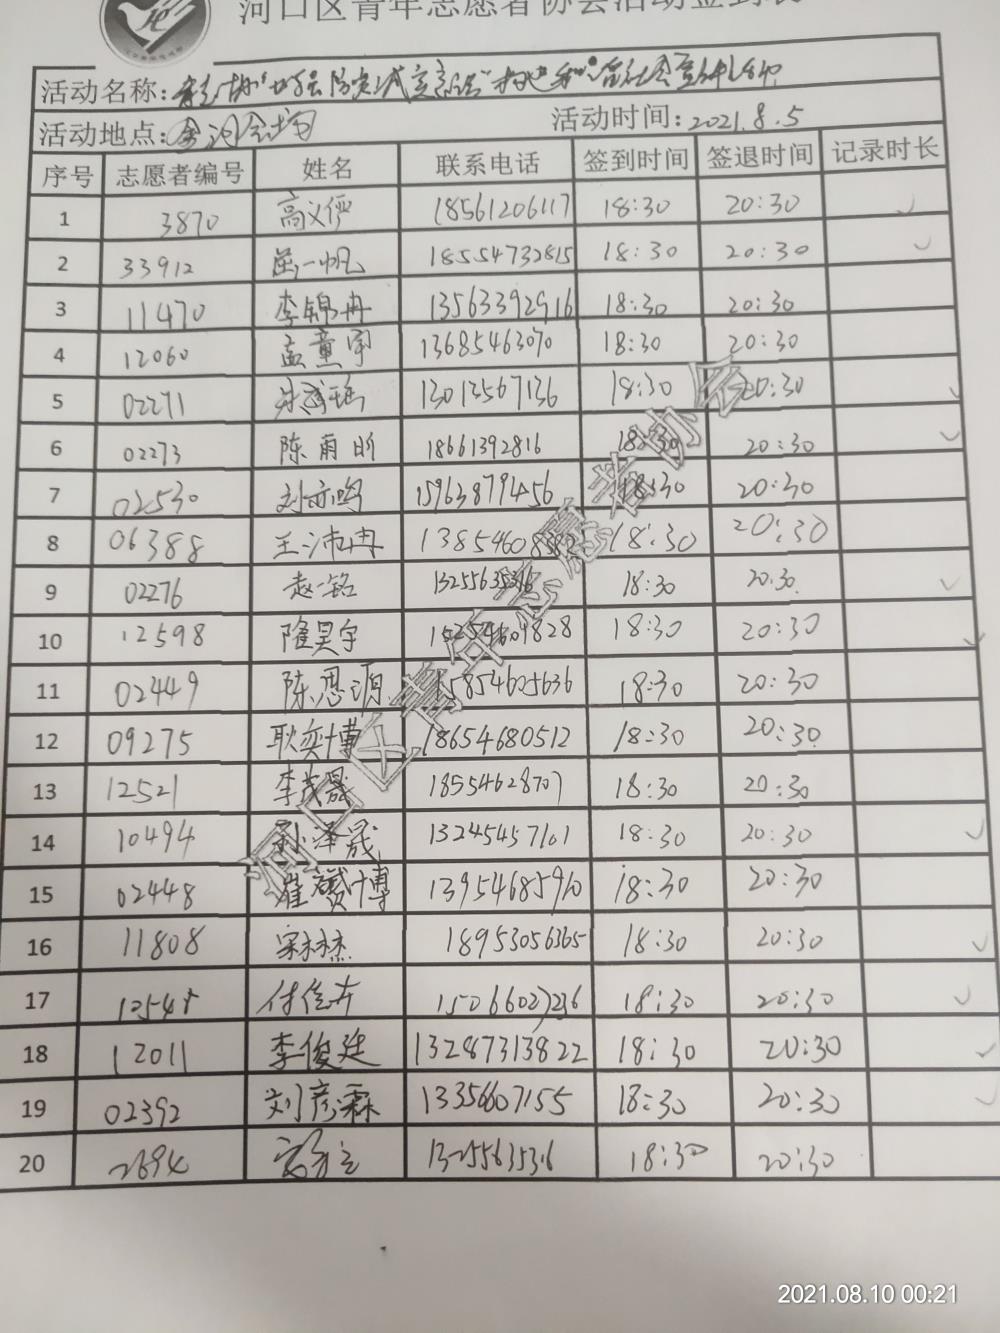 河口区青年志愿者协会活动签到表
活动名称:
活动地点: 活动时间: 2021.8.5
序号 志愿者编号 姓名 联系电话 签到时间 签退时间 记录时长
1 3870 高义俨 18561206117 18:30 20:30 ✓
2 33912 屈一帆 18554732815 18:30 20:30 ✓
3 11470 李锦冉 13563392916 18:30 20:30
4 12060 孟童宇 13685463070 18:30 20:30
5 02271 13013567136 18:30 20:30 ✓
6 02273 陈雨昕 18661392816 18:30 20:30 ✓
7 02530 刘亦鸣 15963879456 18:30 20:30
8 06388 王沛冉 18:30 20:30
9 02276 赵一铭 13255635316 18:30 20:30 ✓
10 12598 隆昊宇 15254609828 18:30 20:30 ✓
11 02449 陈思源 15854605636 18:30 20:30
12 09275 耿奕博 18654680512 18:30 20:30
13 12521 李茂晟 18554628707 18:30 20:30
14 10494 孙泽晟 13245457101 18:30 20:30 ✓
15 02448 崔 博 13954685960 18:30 20:30
16 11808 宋林杰 18953056365 18:30 20:30 ✓
17 付佳卉 15066027236 18:30 20:30 ✓
18 12011 李俊廷 13287313822 18:30 20:30 ✓
19 02392 刘彦霖 13356607155 18:30 20:30 ✓
20 2694 1325563536 18:30 20:30
河口区青年志愿者协会
2021.08.10 00:21